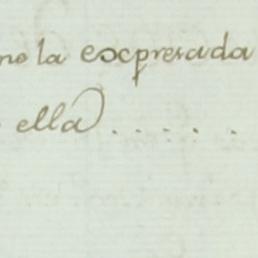 no la expresada
ella . . . . .